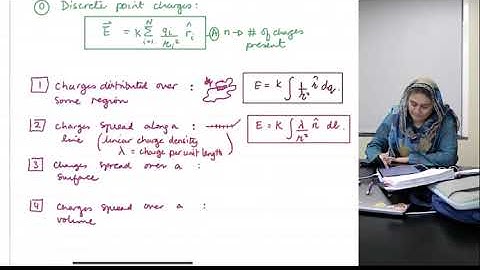 0 Discrete point charges:
E = k Σ i=1 N qi/ri² r̂i A n → # of charges present
1 Charges distributed over some region : dq E = k ∫ 1/r² r̂ dq.
2 Charges spread along a line : E = k ∫ λ/r² r̂ dl.
(linear charge density
λ = charge per unit length)
3 Charges spread over a :
surface
4 Charges spread over a :
volume